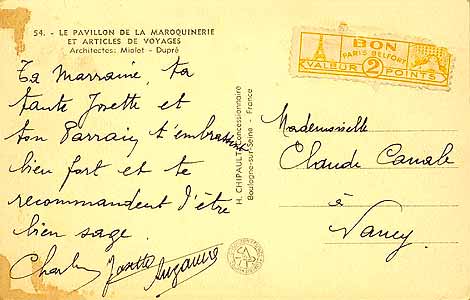 54. - LE PAVILLON DE LA MAROQUINERIE
ET ARTICLES DE VOYAGES
Architectes: Miolet - Dupré
Ta Marraine, ta
tante Josette et
ton Parrain t'embrassent
bien fort et te
recommandent d'être
bien sage.
Charles Josette Suzanne
H. CHIPAULT, Concessionnaire
Boulogne-sur-Seine - France
BON
PARIS BELFORT
VALEUR 2 POINTS
Mademoiselle
Claude Canale
à
Nancy.